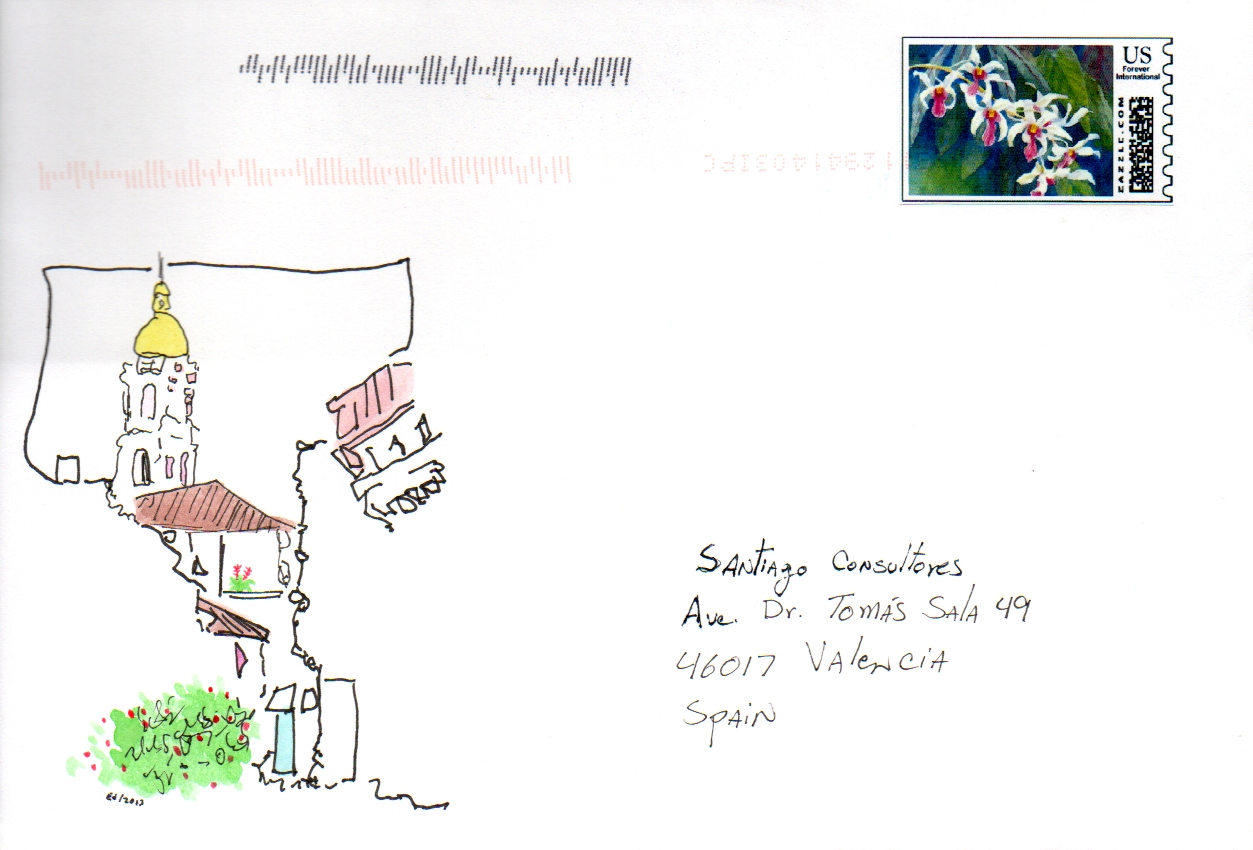 US
Forever
International
ZAZZLE.COM
12941403IPC
Santiago Consultores
Ave. Dr. Tomás Sala 49
46017 Valencia
Spain
Ed/2013